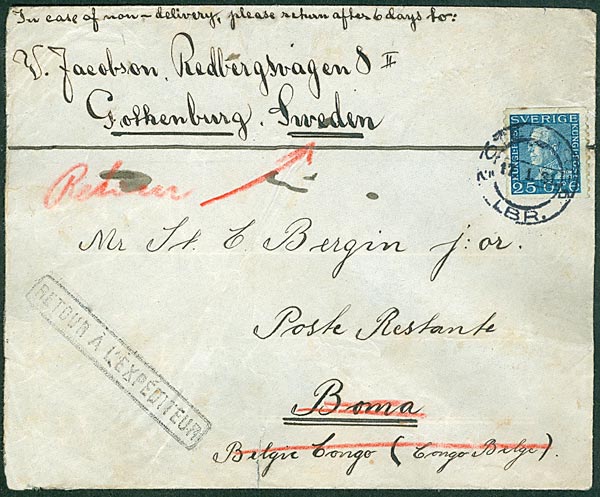 In case of non-delivery, please return after 6 days to:
W. Jacobson, Redbergsvägen 8 II
Gothenburg. Sweden
SVERIGE
25 ÖRE
LBR.
Retour
Mr St. E. Bergin j:or.
Poste Restante
RETOUR A L'EXPÉDITEUR
Boma
Belgie Congo (Congo Belge)